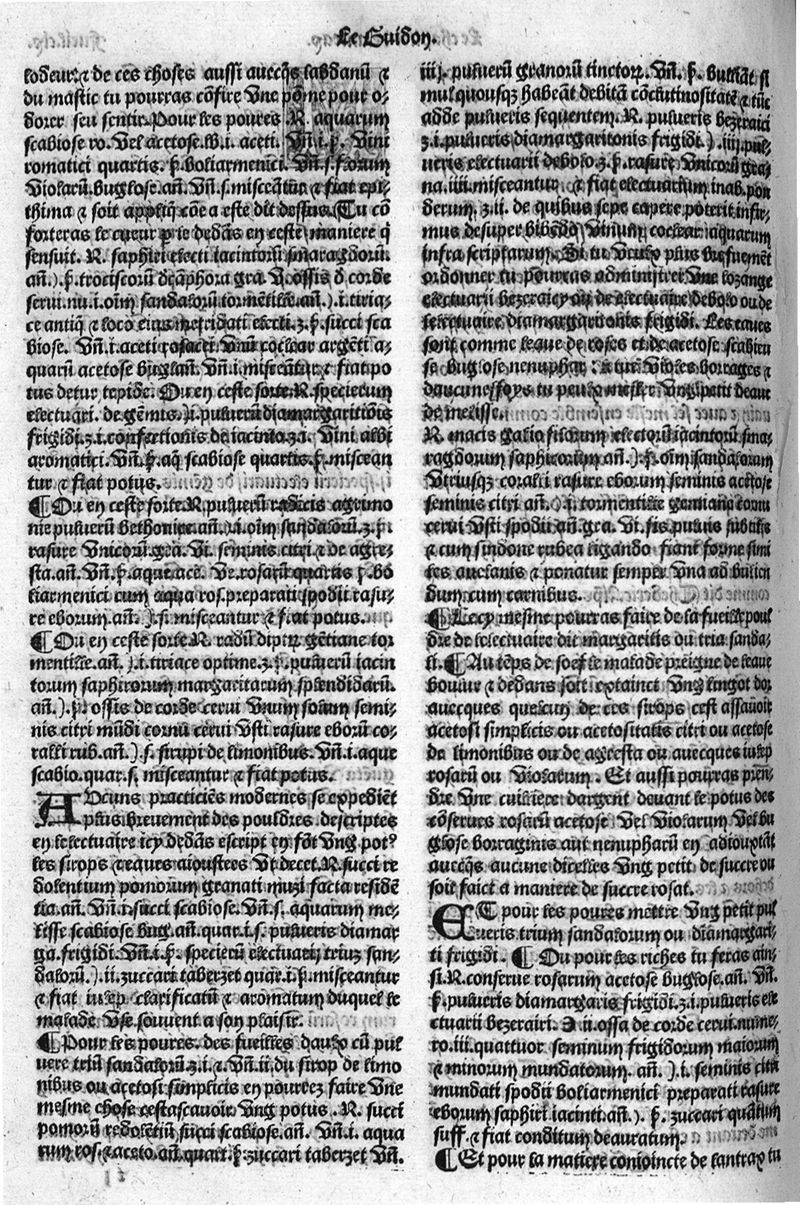 Le Guidon.
lodeur, ⁊ de ces choses aussi auecq̄s labdanū ⁊
du mastic tu pourras cōfire Vne pōme pour o-
dorer seu sentir. Pour les poures R. aquarum
scabiose ro. Vel acetose. lb. i. aceti. Vñ. i. p̄. Vini
romatici quartis. p̄. boliarmenici. Vñ. s. florum
Violarū. buglose. añ. Vñ. s. misceātur ⁊ fiat epi-
thima ⁊ soit appliq̄ cōe a este dit dessus. Tu cō
forteras le cueur p̄ le dedās en ceste maniere q̄
sensuit. R. saphiri electi iacintorū smaragdorū.
añ. ). p̄. trociscorū de cāphora gra. V. ossis d̄ corde
serui. nu. i. oīm̄ sandalorū tormētille. añ. ). i. tiria-
ce antiq̄ ⁊ loco eius metridati electi. ʒ. p̄. succi sca
biose. Vñ. i. aceti rosacei. Vnū coclear argēti a-
quarū acetose buglass. Vñ. i. misceātur ⁊ fiat po
tus detur tepide. Ou en ceste sorte. R. specierum
electuari. de gēmis. ). i. puluerū diamargaritōis
frigidi. ʒ. i. confectionis de iacinto. ʒ. i. Vini albi
aromatici. Vñ. p̄. aq̄ scabiose quartis. p̄. miscean
tur ⁊ fiat potus.
¶ Ou en ceste sorte. R. puluerū radicis agrimo
nie puluerū bethonice. añ. ). i. oīm̄ sandalorū. ʒ. p̄.
rasure Vnicorū. gra. Vi. seminis citri ⁊ de agre-
sta. añ. Vñ. p̄. aque ace. Ve. rosarū quartis p̄. bo
liarmenici cum aqua ros. preparati spodii rasu-
re eborum. añ. ). s. misceantur ⁊ fiat potus.
¶ Ou en ceste sorte R. radicū diptā. gētiane tor
mentille. añ. ). i. tiriace optime. ʒ. p̄. puluerū iacin
torum saphirorum margaritarum splendidarū.
añ. ). p̄. ossis de corde cerui Vnum solum semi-
nis citri mūdi cornū cerui Vsti rasure eborū co-
ralli rub. añ. ). s. sirupi de limonibus. Vñ. i. aque
scabio. quar. s. misceantur ⁊ fiat potus.
AVcuns practiciēs modernes se expediēt
plus breuement des pouldres descriptes
en lelectuaire icy dedās escript en fōt Vng potꝰ
les sirops ⁊ eaques aioustees Vt decet. R. succi re
dolentium pomorum granati muzi facta residē
tia. añ. Vñ. i. succi scabiose. Vñ. s. aquarum me-
lisse scabiose bug. añ. quar. i. s. pulueris diamar
ga. frigidi. Vñ. i. p̄. specierū electuarij triuz san-
dalorū. ). ii. zuccari taberzet quar. i. p̄. misceantur
⁊ fiat iulep. clarificatū ⁊ aromatum duquel le
malade Vse souuent a son plaisir.
¶ Pour les poures. des fueilles dauho cū pul
uere triū sandalorū. ʒ. i. ⁊. Vñ. ii. du sirop de limo
nibus ou acetosi simplicis en pourrez faire Vne
mesme chose cestascauoir Vng potus. R. succi
pomorū redolētiū succi scabiose. añ. Vñ. i. aqua
rum ros. ⁊ aceto. añ. quart. p̄. zuccari taberzet Vñ.
iii. p̄. puluerū granorū tinctorꝝ. Vñ. p̄. bulliāt si
mul quousqꝫ habeāt debitam cōclutinositatē ⁊ tūc
adde pulueris sequentem. R. pulueris bezeraici
ʒ. i. pulueris diamargaritonis frigidi. ). iiii. pul-
ueris electuarii de bolo. ʒ. p̄. rasure Vnicorū gra-
na. iiii. misceantur ⁊ fiat electuarium in ab. pon
derum. ʒ. ii. de quibus seps capere poterit infir-
mus desuper bibēdo Vinum coclear aquarum
infra scriptarum. Si tu Veulx plus brefuemēt
ordonner tu pourras administrer Vne lozange
electuarii bezeraicy ou de electuaire de bolo ou de
lelectuaire diamargaritonis frigidi. Les eaues
sont comme leaue de roses et de acetose scabieu
se buglose nenuphar ⁊ tur Violes borrages ⁊
daucuneffoys tu peulx mesler Vng petit deaue
de melisse.
R. macis galia filarum electorū iacintorū sma
ragdorum saphirorum añ. ). p̄. oīm̄ sandalorum
Vtriusqꝫ coralli rasure eborum seminis acetose
seminis citri añ. ). p̄. tormentille gentiane cornu
cerui Vsti spodii añ. gra. Vi. fis puluis subtilis
⁊ cum sindone rubea ligando fiant forme simi
les auelanis ⁊ ponatur semper Vna ad bullien
dum cum carnibus.
¶ Lecy mesme pourras faire de la fueille poul
dre de lelectuaire dit margaritis ou tria sanda-
li. ¶ Au tēps de soef le malade preigne de leaue
bouue ⁊ dedans soit extainct Vng lingot dor
auecques quelcun de ces sirops cest assauoir
acetosi simplicis ou acetositatis citri ou acetose
de limonibus ou de agresta ou auecques iulep
rosarū ou Violarum. Et aussi pourras pren-
dre Vne cuilliere dargent deuant le potus des
cōserues rosarū acetose Vel Violarum Vel bu
glose borraginis aut nenupharū en adioustāt
auecq̄s aucune dicelles Vng petit de succre ou
soit faict a maniere de succre rosat.
ET pour les poures mettre Vng petit pul
ueris trium sandalorum ou diamargari-
ti frigidi. ¶ Ou pour les riches tu feras ain-
si. R. conserue rosarum acetose buglose. añ. Vñ.
p̄. pulueris diamargaris frigidi. ʒ. i. pulueris ele
ctuarii bezerairi. ʒ. ii. ossa de corde cerui. nume-
ro. iii. quattuor seminum frigidorum maiorum
⁊ minorum mundatorum. añ. ). i. seminis citri
mundati spodii boliarmenici preparati rasure
eborum saphiri iacinti añ. ). p̄. zuccari quātum
suff. ⁊ fiat conditum deauratum.
¶ Et pour la matiere conioincte de lantrax tu